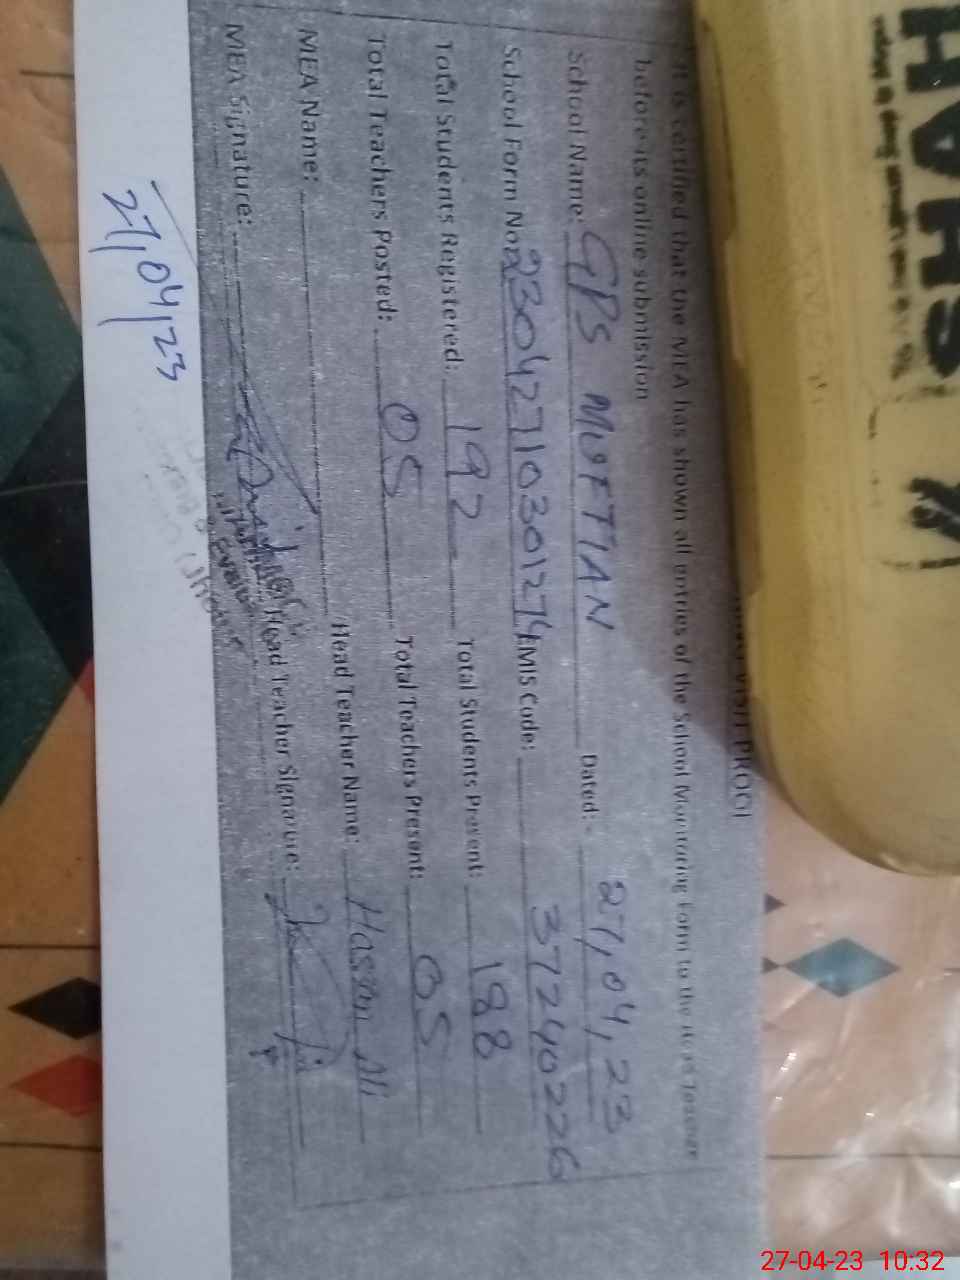 VISIT PROOF
It is certified that the MEA has shown all entries of the School Monitoring Form to the Head Teacher
before its online submission
School Name: GPS MUFTIAN Dated: 27/04/23
School Form No: 23042710301274 EMIS Code: 37240226
Total Students Registered: 192 Total Students Present: 188
Total Teachers Posted: 05 Total Teachers Present: 05
MEA Name: Head Teacher Name: Hassan Ali
MEA Signature: Head Teacher Signature:
27/04/23
SHAH
27-04-23 10:32